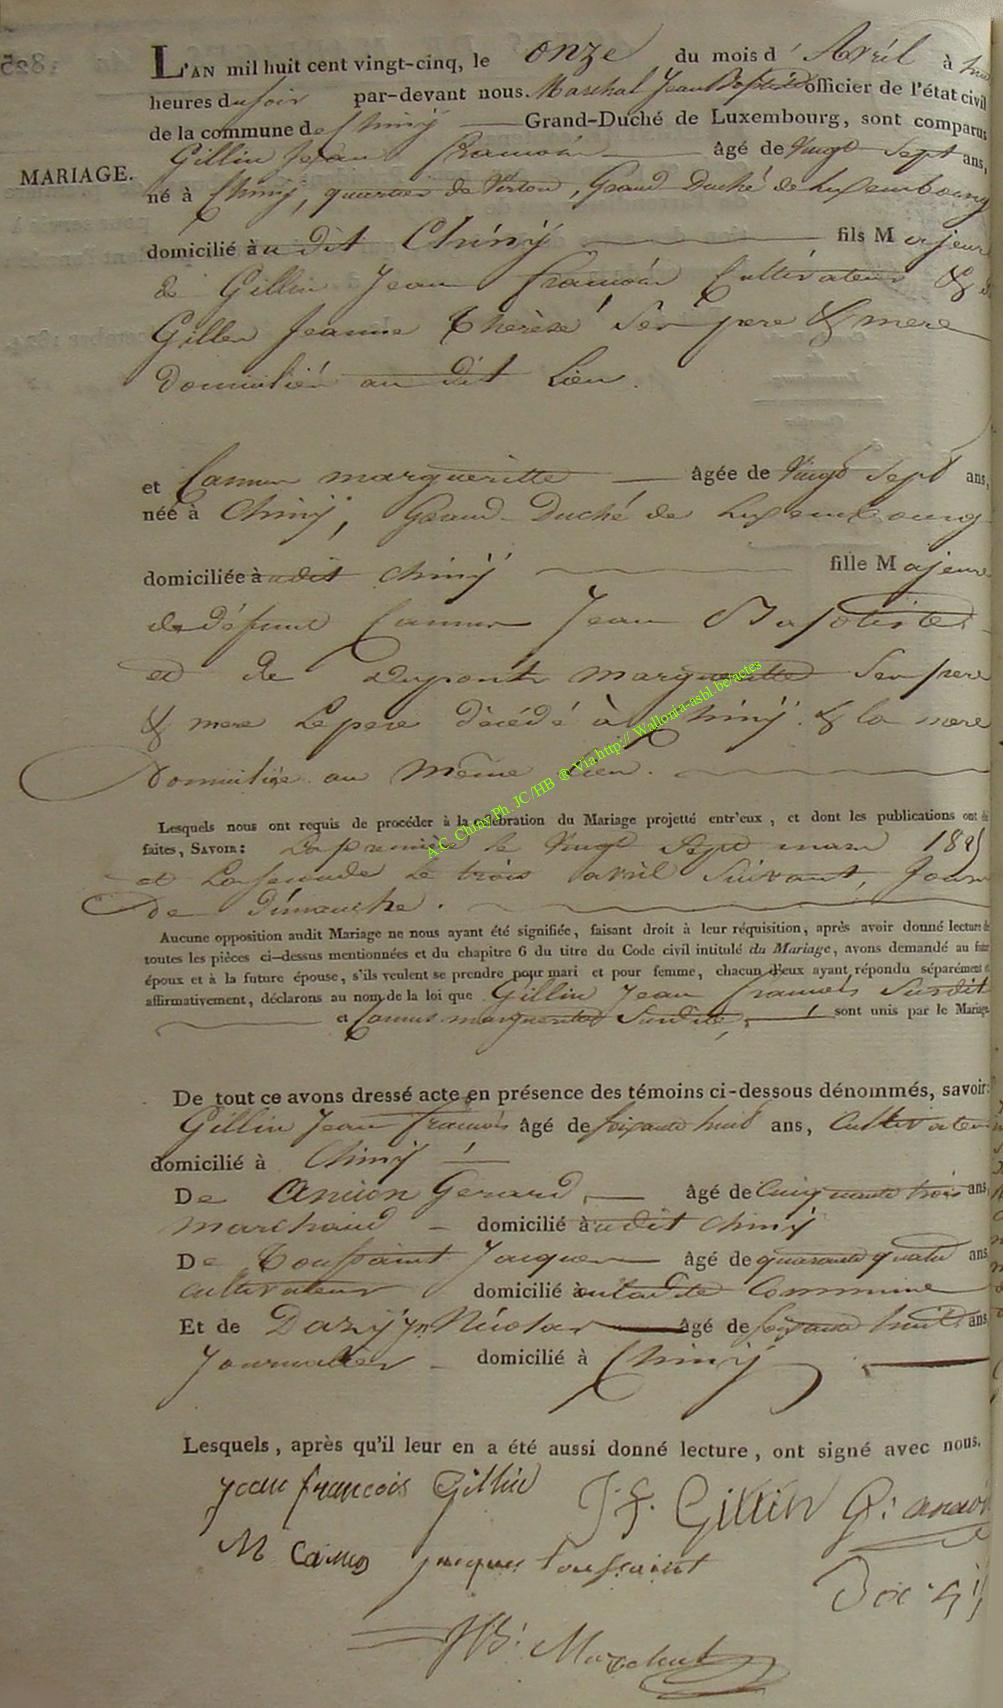 L'AN mil huit cent vingt-cinq, le onze du mois d' Avril à huit
heures du soir par-devant nous Maréchal Jean Baptiste officier de l'état civil
de la commune de Chiny Grand-Duché de Luxembourg, sont comparus
Gillin Jean françois âgé de Vingt Sept ans,
MARIAGE.
né à Chiny, quartier de Virton, Grand Duché de Luxembourg
domicilié à u dit Chiny fils Majeur
de Gillin Jean françois Cultivateur & de
Gillen Jeanne Thérèse Ses pere & mere
Domiciliés au dit Lieu.
et Camus margueritte âgée de Vingt Sept ans,
née à Chiny, Grand Duché de Luxembourg
domiciliée à udit Chiny fille Majeure
de défunt Camus Jean Baptiste
et de Dupont margueritte Ses pere
& mere Le pere décédé à Chiny & la mere
Domiciliée au même Lieu.
Lesquels nous ont requis de procéder à la célébration du Mariage projetté entr'eux, et dont les publications ont été
faites, SAVOIR: La premiere le Vingt Sept mars 1825
et La seconde Le trois avril Suivant, Jour
De Dimanche.
Aucune opposition audit Mariage ne nous ayant été signifiée, faisant droit à leur réquisition, après avoir donné lecture de
toutes les pièces ci-dessus mentionnées et du chapitre 6 du titre du Code civil intitulé du Mariage, avons demandé au futur
époux et à la future épouse, s'ils veulent se prendre pour mari et pour femme, chacun d'eux ayant répondu séparément et
affirmativement, déclarons au nom de la loi que Gillin Jean françois Susdit
et Camus margueritte Susdite, sont unis par le Mariage
De tout ce avons dressé acte en présence des témoins ci-dessous dénommés, savoir:
Gillin Jean françois âgé de soixante huit ans, Cultivateur
domicilié à Chiny
De Ancion Gerard, âgé de Cinquante trois ans
marchand domicilié à udit Chiny
De Toussaint Jacques âgé de quarante quatre ans
cultivateur domicilié à Commune
Et de Nicolas âgé de soixante huit ans
Journalier domicilié à Chiny
Lesquels, après qu'il leur en a été aussi donné lecture, ont signé avec nous.
Jean françois Gillin J. f. Gillin G: ancion
M Camus jacques toussaint
JB: Marechal
A.C. Chiny Ph. JC/HB ® Via http:// Wallonia-asbl.be/actes